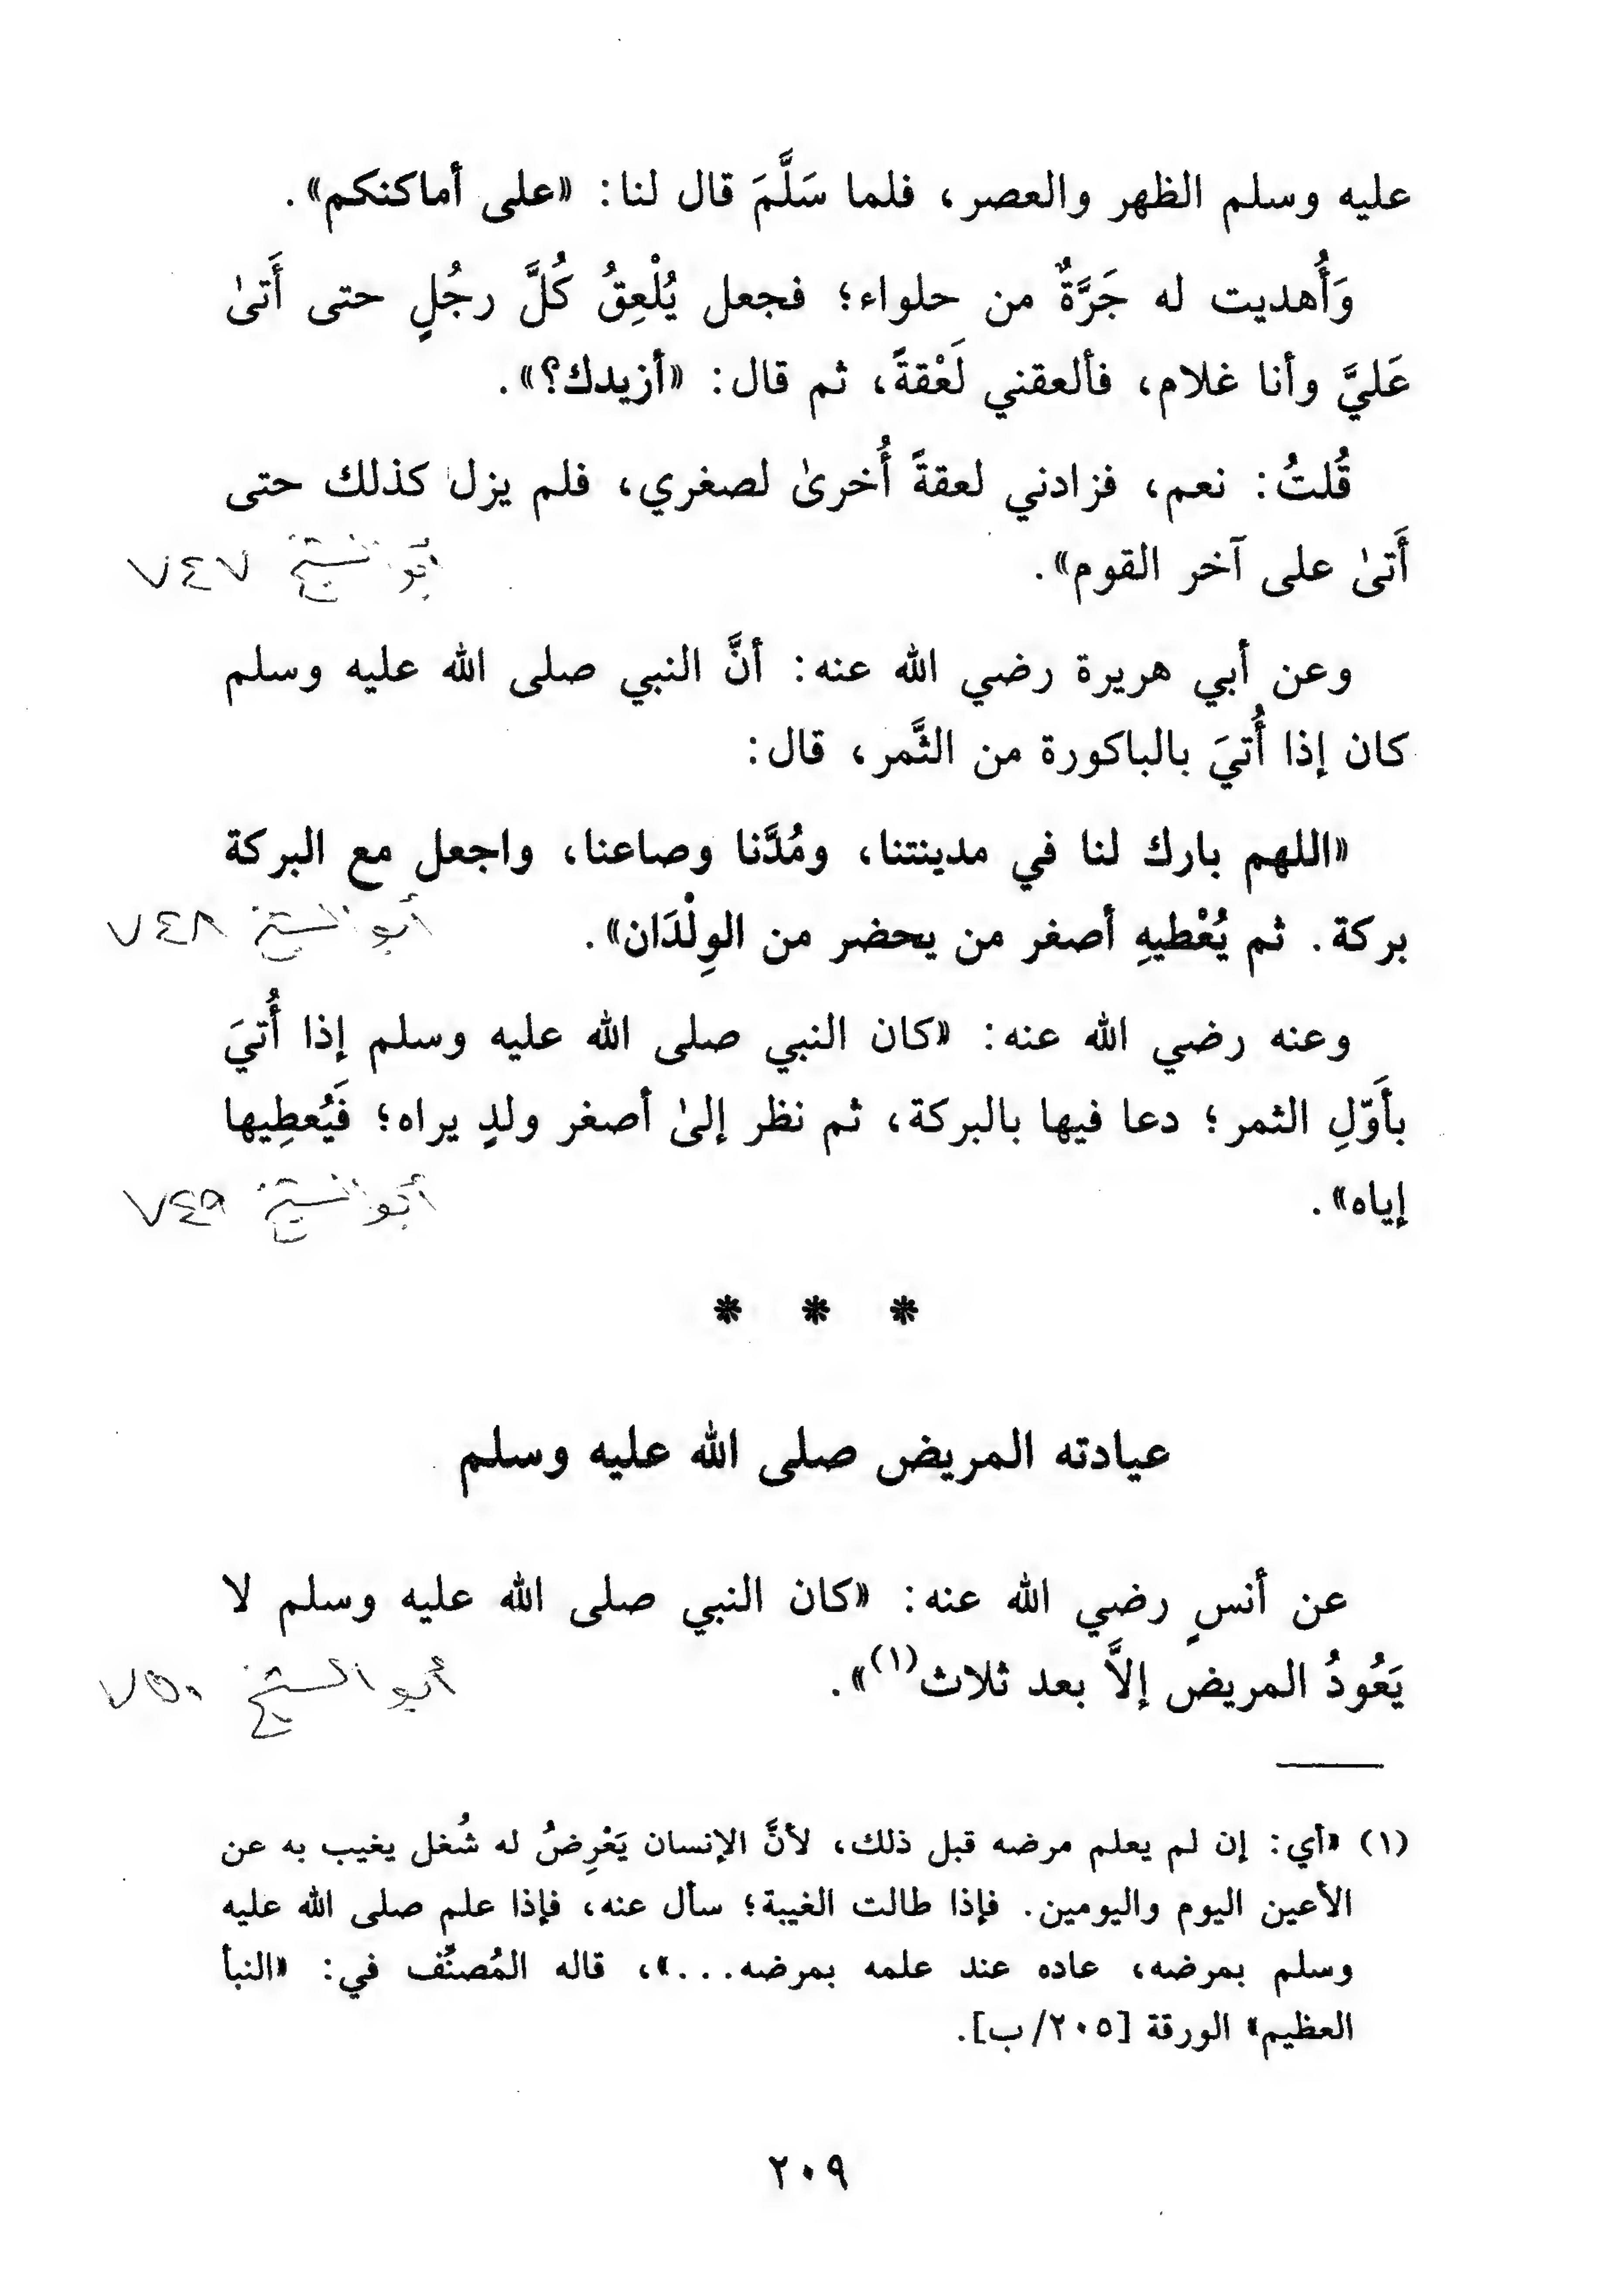 عليه وسلم الظهر والعصر، فلما سَلَّمَ قال لنا: «على أماكنكم».
وَأُهديت له جَرَّةٌ من حلواء؛ فجعل يُلْعِقُ كُلَّ رجُلٍ حتى أَتىٰ
عَليَّ وأنا غلام، فألعقني لَعْقةً، ثم قال: «أزيدك؟».
قُلتُ: نعم، فزادني لعقةً أُخرىٰ لصغري، فلم يزل كذلك حتى
أَتىٰ على آخر القوم». أبو الشيخ ٧٤٧
وعن أبي هريرة رضي الله عنه: أنَّ النبي صلى الله عليه وسلم
كان إذا أُتيَ بالباكورة من الثَّمر، قال:
«اللهم بارك لنا في مدينتنا، ومُدَّنا وصاعنا، واجعل مع البركة
بركة. ثم يُعْطيهِ أصغر من يحضر من الوِلْدَان». أبو الشيخ ٧٤٨
وعنه رضي الله عنه: «كان النبي صلى الله عليه وسلم إذا أُتيَ
بأَوّلِ الثمر؛ دعا فيها بالبركة، ثم نظر إلىٰ أصغر ولدٍ يراه؛ فَيُعطِيها
إياه». أبو الشيخ ٧٤٩
* * *
عيادته المريض صلى الله عليه وسلم
عن أنسٍ رضي الله عنه: «كان النبي صلى الله عليه وسلم لا
يَعُودُ المريض إلاَّ بعد ثلاث(١)». أبو الشيخ ٧٥٠
(١) «أي: إن لم يعلم مرضه قبل ذلك، لأنَّ الإنسان يَعْرِضُ له شُغل يغيب به عن
الأعين اليوم واليومين. فإذا طالت الغيبة؛ سأل عنه، فإذا علم صلى الله عليه
وسلم بمرضه، عاده عند علمه بمرضه...»، قاله المُصنِّف في: «النبأ
العظيم» الورقة [٢٠٥/ب].
٢٠٩